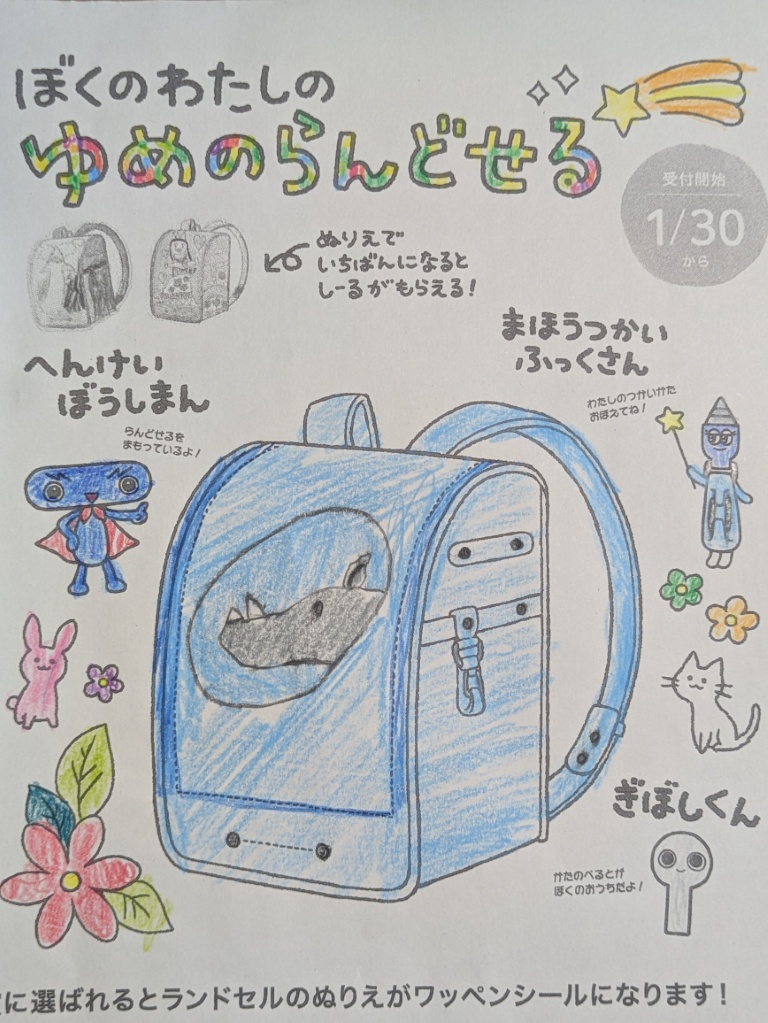 ぼくのわたしの
ゆめのらんどせる
受付開始
1/30
から
ぬりえで
いちばんになると
しーるがもらえる!
まほうつかい
ふっくさん
わたしのつかいかた
おぼえてね!
へんけい
ぼうしまん
らんどせるを
まもっているよ!
ぎぼしくん
かたのべるとが
ぼくのおうちだよ!
に選ばれるとランドセルのぬりえがワッペンシールになります!